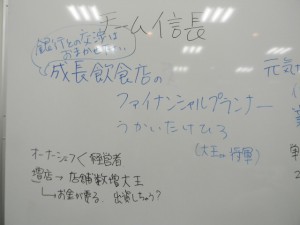 チーム信長
銀行との交渉は
おまかせを…
成長飲食店の
ファイナンシャルプランナー
うかいたけひろ
(大王or将軍)
オーナーシェフ＜経営者
増店→店舗数増大王
お金が要る、出資しちゃう?
元気